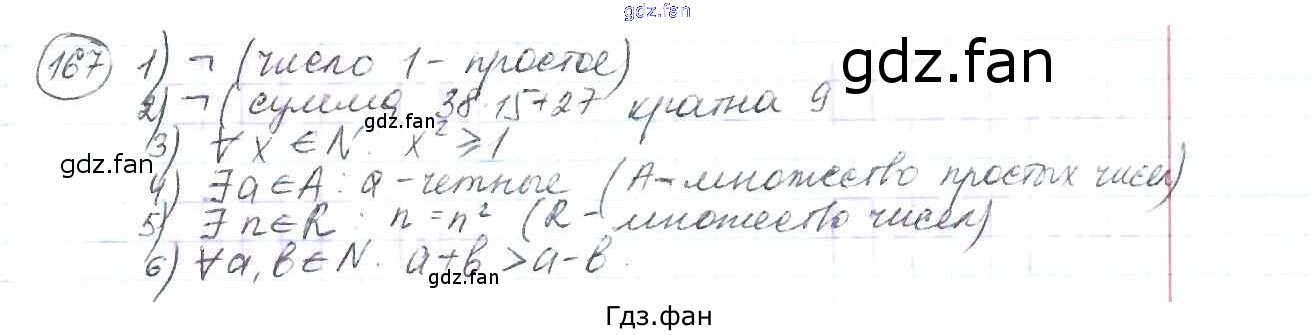 gdz.fan
167 1) ¬ (число 1 - простое)
gdz.fan
2) ¬ (сумма 38·15+27 кратна 9
gdz.fan
gdz.fan
3) ∀ x ∈ N: x² ⩾ 1
4) ∃ a ∈ A: a - четные (A - множество простых чисел)
5) ∃ n ∈ R: n = n² (R - множество чисел)
gdz.fan
6) ∀ a, b ∈ N: a + b > a - b.
gdz.fan
Гдз.фан